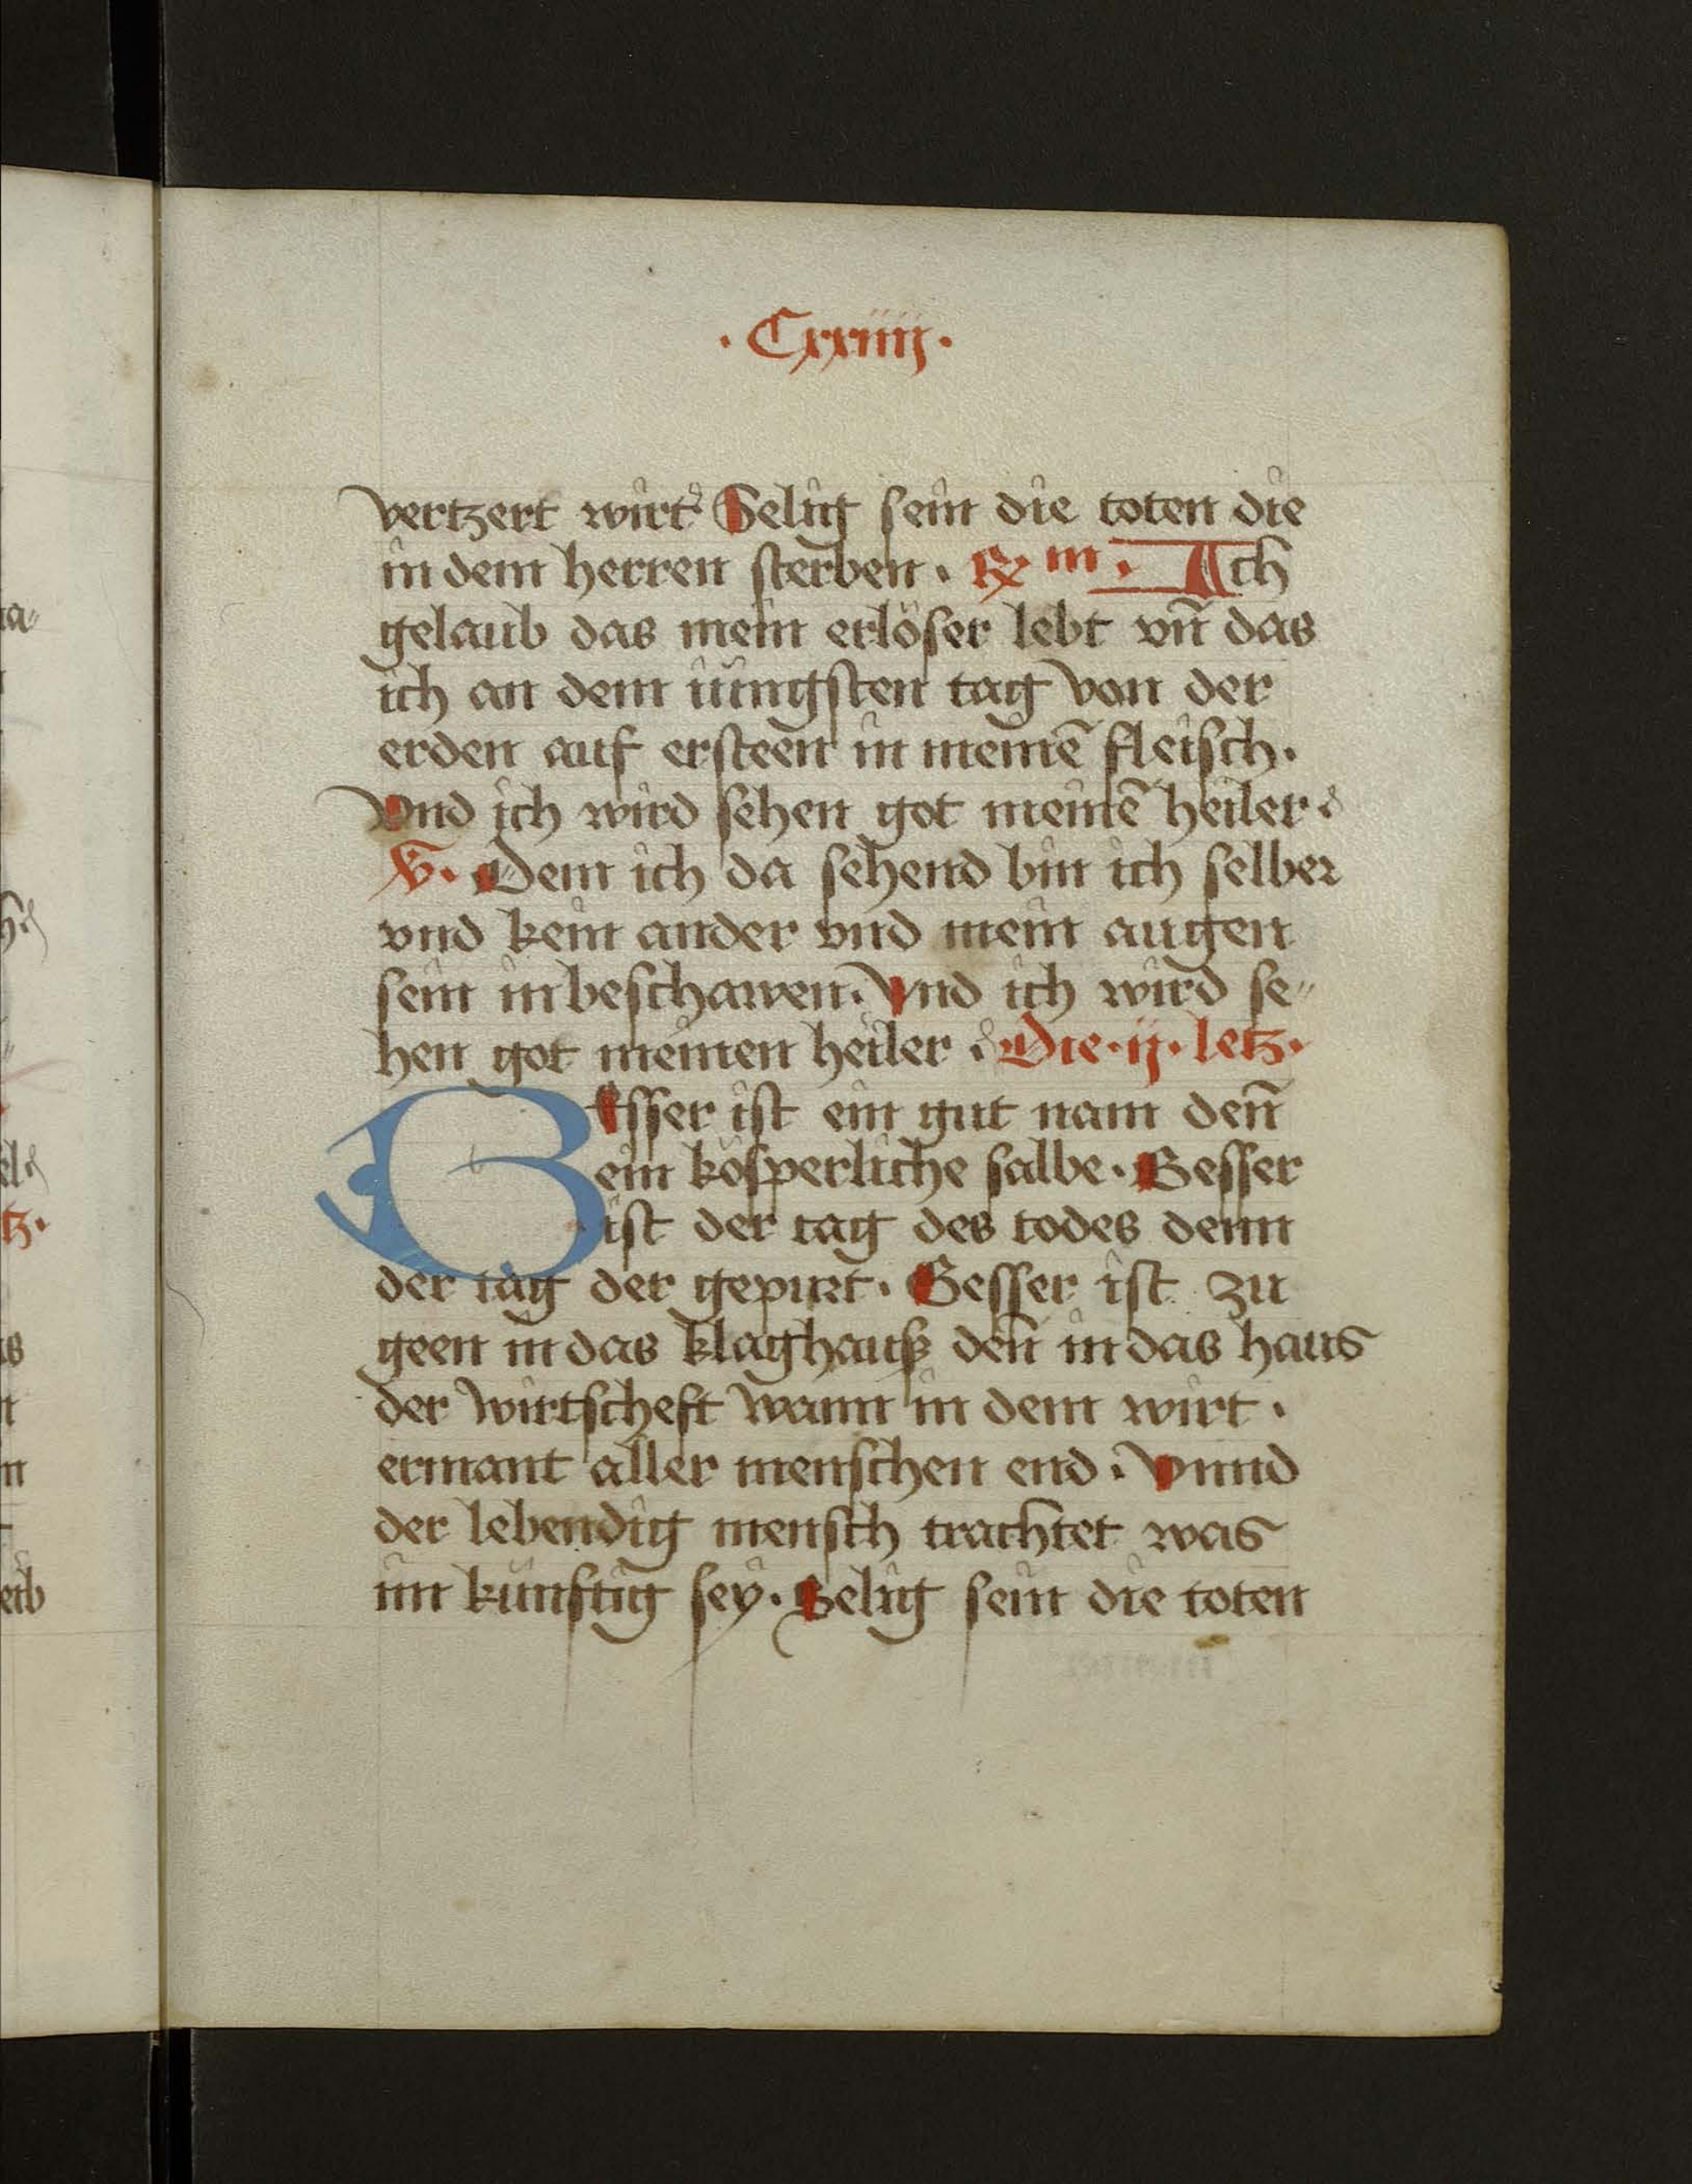 · Cxxiiij ·
vertzert wirt Selig sein die toten die
in dem herren sterben · ℞ m · Ich
gelaub das mein erlöser lebt vn̄ das
ich an dem iüngsten tag von der
erden auf ersteen in meinē fleisch ·
Vnd ich wird sehen got meinē heiler ·
℣ · Dem ich da sehend bin ich selber
vnd kein ander vnd mein augen
sein in beschawen · Vnd ich wird se⸗
hen got meinen heiler · Die · ij · letz ·
BEsser ist ein gut nam den̄
ein kösperliche salbe · Besser
ist der tag des todes denn
der tag der gepurt · Besser ist zu
geen in das klaghauß den̄ in das haus
der wirtscheft wann in dem wirt ·
ermant aller menschen end · Vnnd
der lebendig mensch trachtet was
im künftig sey · Selig sein die toten